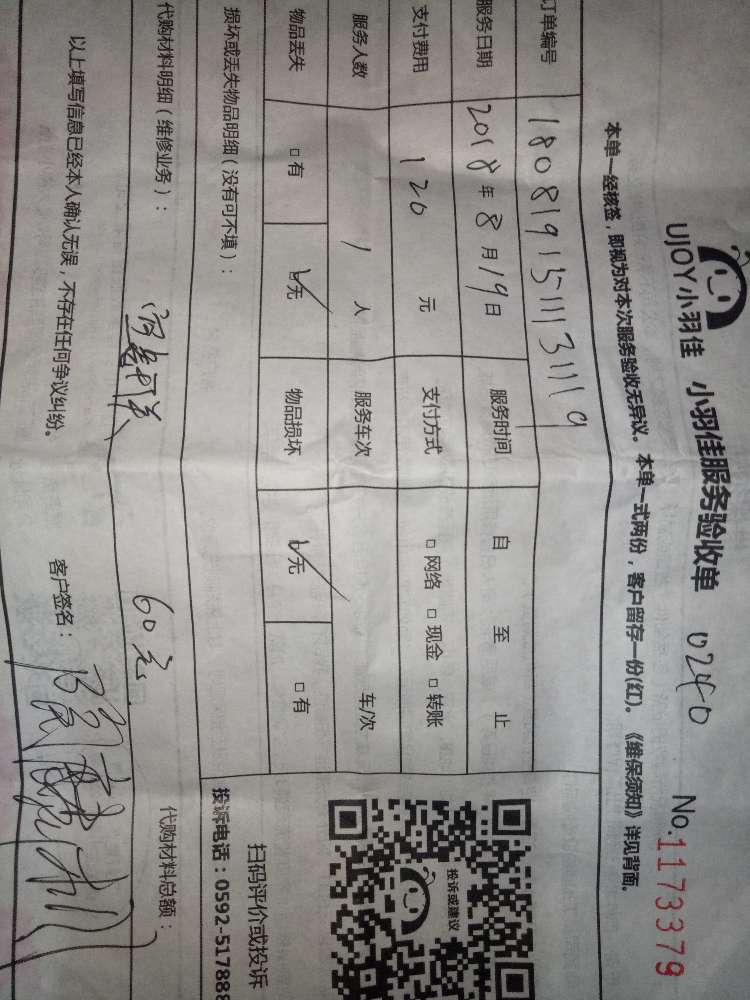 UJOY小羽佳 小羽佳服务验收单 0240 No.1173379
本单一经核签，即视为对本次服务验收无异议。本单一式两份，客户留存一份(红)。《维保须知》详见背面。
订单编号 1808191511131119
服务日期 2018年8月19日 服务时间 自 至 止
支付费用 120 元 支付方式 □网络 □现金 □转账
服务人数 1 人 服务车次 车/次
物品丢失 □有 □无 物品损坏 □无 □有
投诉或建议
损坏或丢失物品明细(没有可不填)：
扫码评价或投诉
投诉电话：0592-517888
代购材料明细(维修业务)： 60元 代购材料总额：
以上填写信息已经本人确认无误，不存在任何争议纠纷。 客户签名：